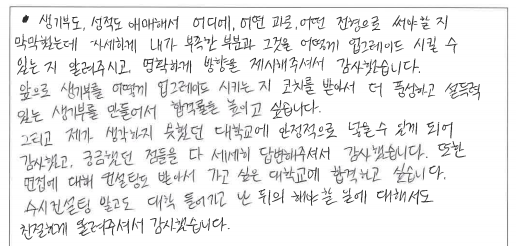 • 생기부도, 성적도 애매해서 어디에, 어떤 과로, 어떤 전형으로 써야할 지
막막했는데 자세하게 내가 부족한 부분과 그것을 어떻게 업그레이드 시킬 수
있는 지 알려주시고, 명확하게 방향을 제시해주셔서 감사했습니다.
앞으로 생기부를 어떻게 업그레이드 시키는 지 코치를 받아서 더 풍성하고 설득력
있는 생기부를 만들어서 합격률을 높이고 싶습니다.
그리고 제가 생각하지 못했던 대학교에 안정적으로 넣을 수 있게 되어
감사했고, 궁금했던 점들을 다 세세히 답변해주셔서 감사했습니다. 또한
면접에 대해 컨설팅도 받아서 가고 싶은 대학교에 합격하고 싶습니다.
수시컨설팅 말고도 대학 들어가고 난 뒤의 해야 할 일에 대해서도
친절하게 알려주셔서 감사했습니다.